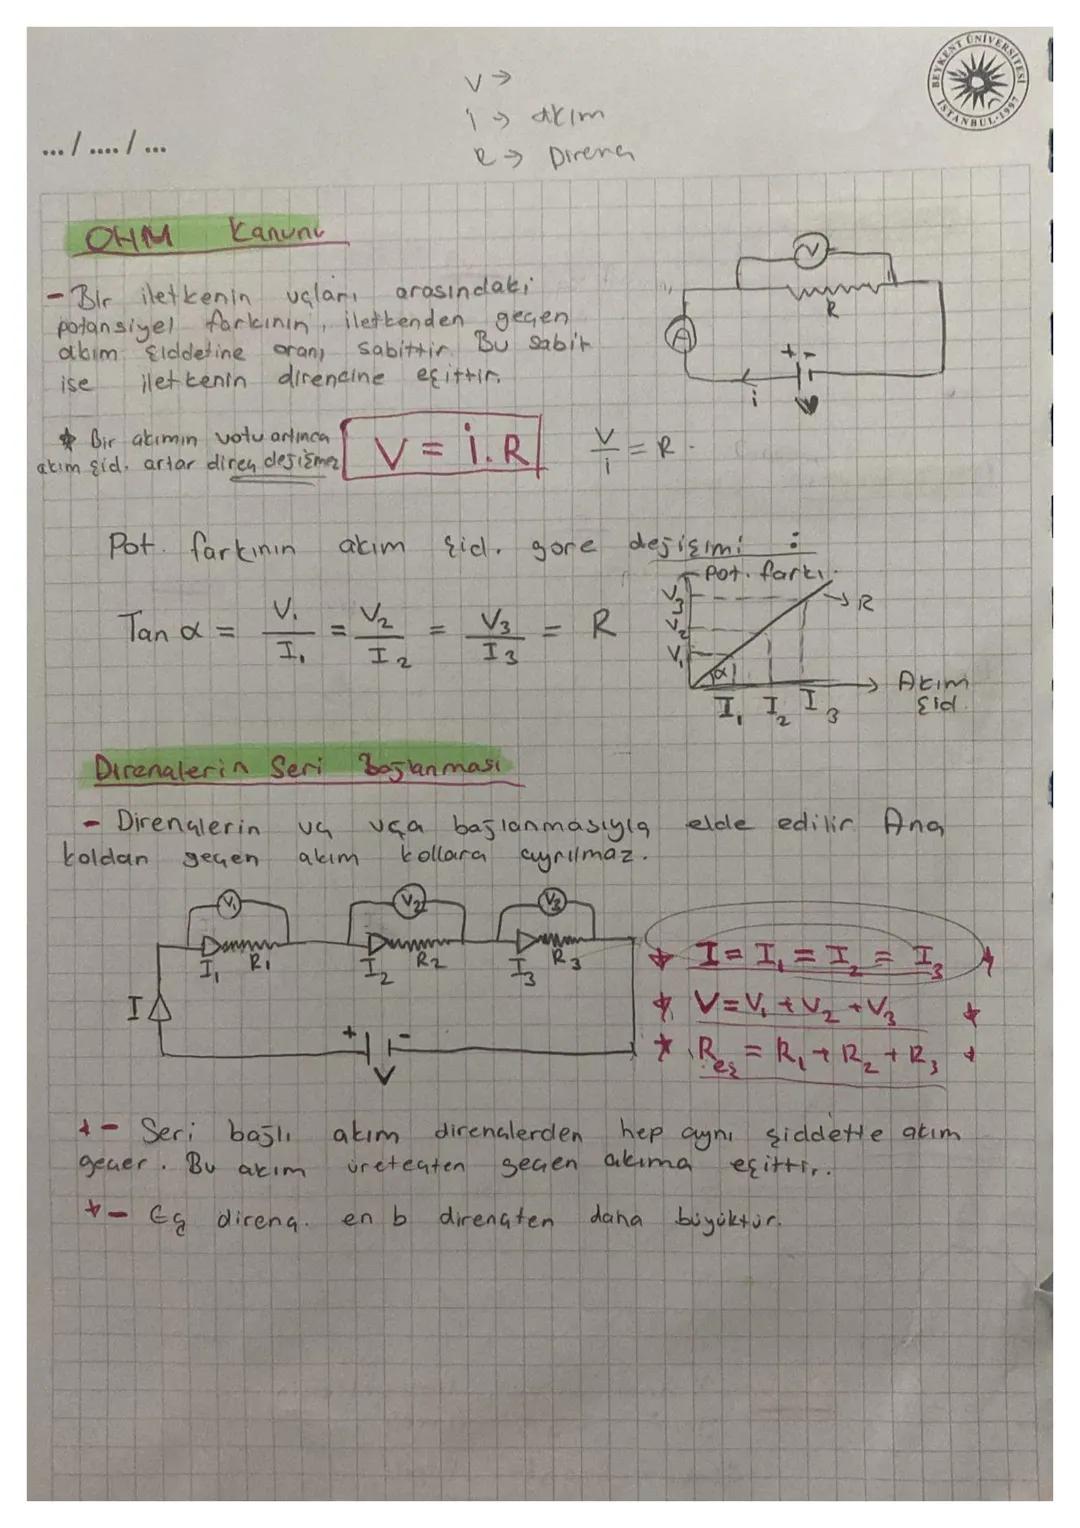 V →
i → akım
R → Direnç
... / .... / ...
BEYKENT ÜNİVERSİTESİ
İSTANBUL-1997
OHM Kanunu
- Bir iletkenin uçları arasındaki
potansiyel farkının, iletkenden geçen
akım şiddetine oranı sabittir. Bu sabit
ise iletkenin direncine eşittir.
V
R
A
+ -
i
V
* Bir akımın votu artınca
akım şid. artar direnç değişmez
V = İ.R
V/i = R.
Pot. farkının akım şid. göre değişimi :
Tan α = V₁/I₁ = V₂/I₂ = V₃/I₃ = R
Pot. farkı
V₃
V₂
V₁
α
→ R
I₁ I₂ I₃
Akım
şid.
Dirençlerin Seri Bağlanması
- Dirençlerin uç uca bağlanmasıyla elde edilir Ana
koldan geçen akım kollara ayrılmaz.
V₁ V₂ V₃
I₁ R₁ I₂ R₂ I₃ R₃
I
+ -
V
* I = I₁ = I₂ = I₃ *
* V = V₁ + V₂ + V₃ *
* Reş = R₁ + R₂ + R₃ *
*- Seri bağlı akım dirençlerden hep aynı şiddette akım
geçer. Bu akım üreteçten geçen akıma eşittir.
*- Eş direnç. en b dirençten daha büyüktür.